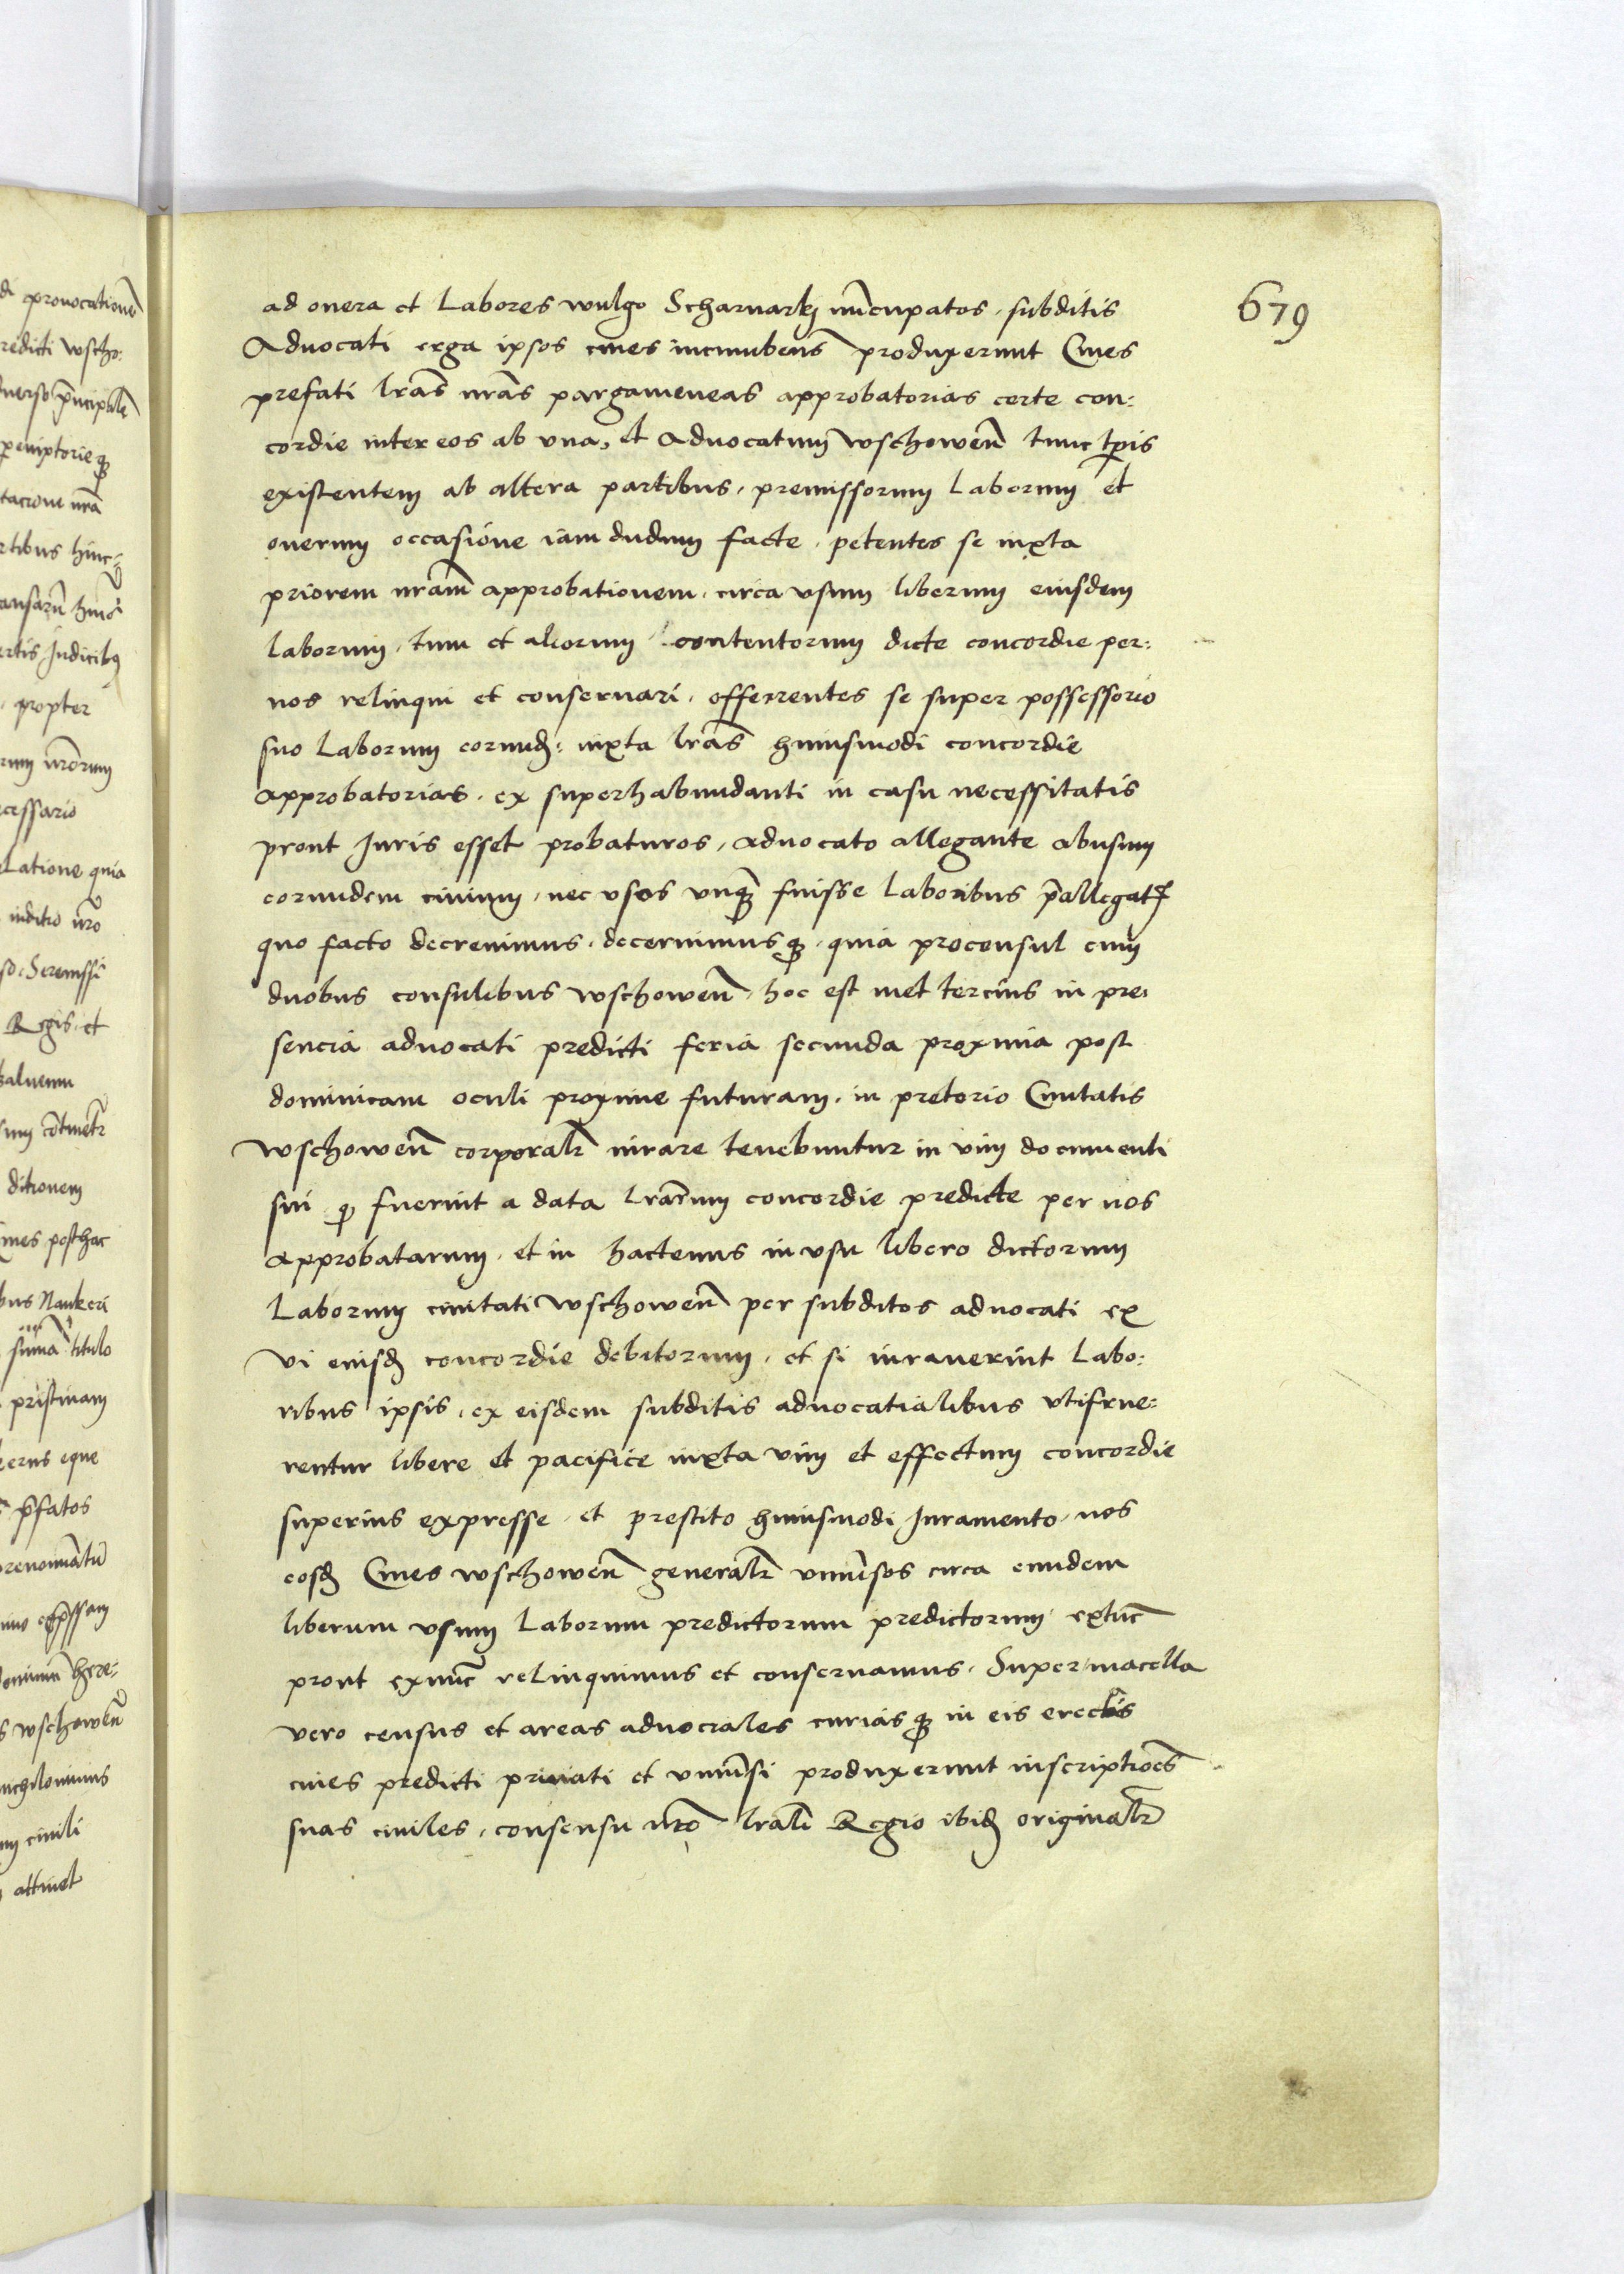 679
ad onera et Labores wulgo Scharvarkj nu̅cupatos, subditis
Advocati erga ipsos cives incumben̅ produxerunt Cives
prefati lr̅as nr̅as pargameneas approbatorias certe con:
cordie inter eos ab una, et Advocatum wschowen̅ tunc tp̅is
existentem ab altera partibus, premissorum Laborum et
onerum occasione iam dudum facte, petentes se iuxta
priorem nr̅am approbationem, circa usum liberum eiusdem
laborum, tum et aliorum contentorum dicte concordie per:
nos relinqui et conservari, offerrentes se super possessorio
suo Laborum eorund: iuxta lr̅as huiusmodi concordie
approbatorias, ex superhabundanti in casu necessitatis
prout Juris esset probaturos, advocato allegante abusum
eorundem civium, nec usos unq̅ fuisse Laboribus p̅allegat̅
quo facto decrevimus, decernimusq̅, quia proconsul cum
duobus consulibus wschowen̅, hoc est met tercius in pre:
sencia advocati predicti feria secunda proxima post
dominicam oculi proxime futuram, in pretorio Civitatis
wschowen̅ corporalr̅ iurare tenebuntur in vim documenti
sui q̅ fuerint a data lr̅arum concordie predicte per nos
approbatarum, et in hactenus in usu libero dictorum
Laborum civitati wschowen̅ per subditos advocati ex
vi eiusd̅ concordie debitorum, et si iuraverint Labo:
ribus ipsis, ex eisdem subditis advocatialibus utifrue:
rentur libere et pacifice iuxta vim et effectum concordie
superius expresse, et prestito huiusmodi Juramento, nos
eosd̅ Cives wschowen̅ generalr̅ univ̅sos circa eundem
liberum usum Laborum predictorum predictorum, extu̅c
prout exnu̅c relinquimus et conservamus, Super macella
vero census et areas advociales curiasq̅ in eis erectis
cives predicti privati et univ̅si produxerunt inscriptio̅es
suas civiles, consensu nr̅o lr̅ali Regio ibid̅ originalr̅